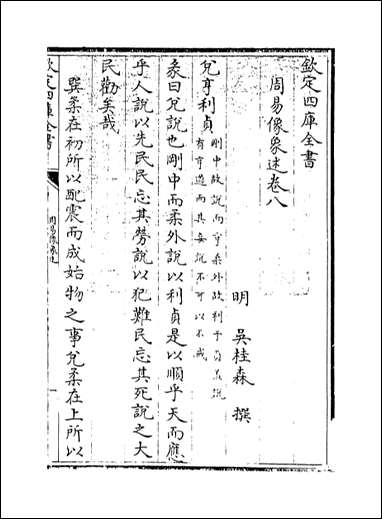 欽定四庫全書
周易像象述卷八
明 吳桂森 撰
兌亨利貞
剛中故說而亨柔外故利于貞蓋說
有亨道而其妄說不可以不戒
彖曰兌說也剛中而柔外說以利貞是以順乎天而應
乎人說以先民民忘其勞說以犯難民忘其死說之大
民勸矣哉
巽柔在初所以配震而成始物之事兌柔在上所以
欽定四庫全書
周易像象述